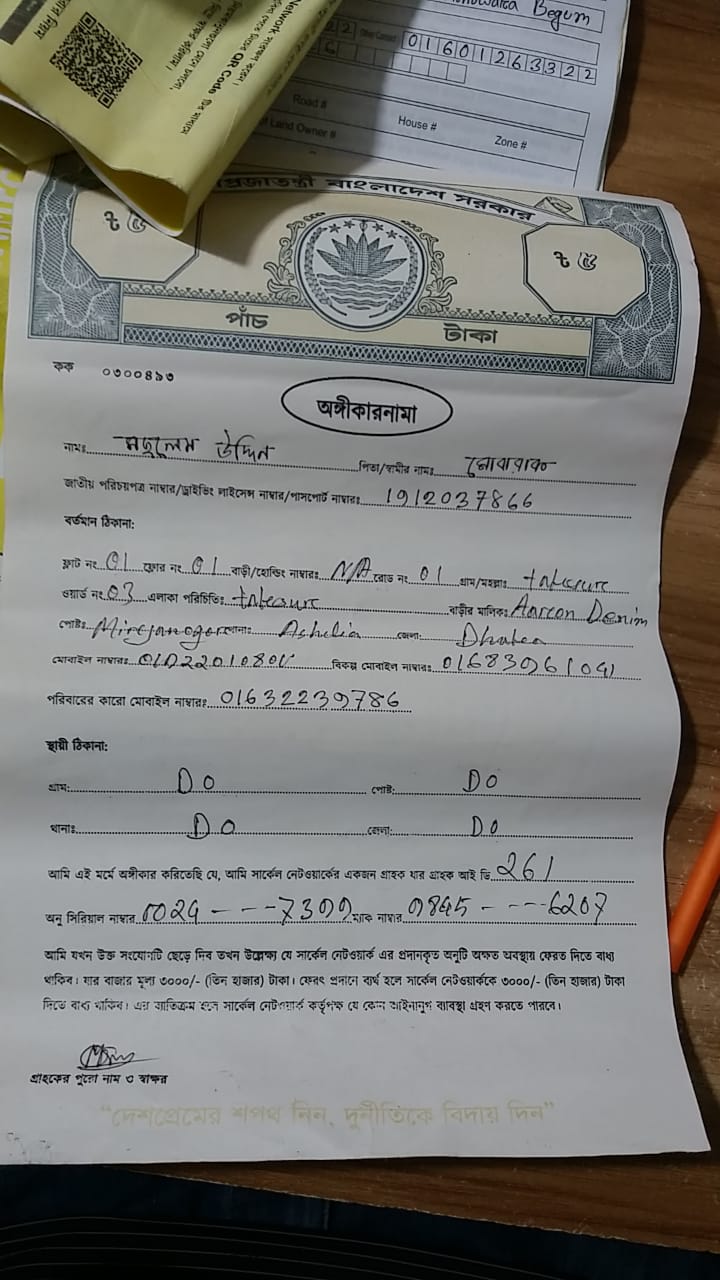 Begum
22 Other Contact: 01601263322
Network
QR Code
Road #
House #
Zone #
Land Owner #
প্রজাতন্ত্রী বাংলাদেশ সরকার
৳ ৫ ৳ ৫
পাঁচ টাকা
কক ০৩০০৪৯৩
অঙ্গীকারনামা
নামঃ উদ্দিন পিতা/স্বামীর নামঃ মোবারক
জাতীয় পরিচয়পত্র নাম্বার/ড্রাইভিং লাইসেন্স নাম্বার/পাসপোর্ট নাম্বারঃ 1912037866
বর্তমান ঠিকানা:
ফ্লাট নং 01 ফ্লোর নং 01 বাড়ী/হোল্ডিং নাম্বারঃ N/A রোড নং 01 গ্রাম/মহল্লাঃ
ওয়ার্ড নং 03 এলাকা পরিচিতিঃ বাড়ীর মালিকঃ Denim
পোষ্টঃ থানাঃ জেলা: Dhaka
মোবাইল নাম্বারঃ বিকল্প মোবাইল নাম্বারঃ 01683961091
পরিবারের কারো মোবাইল নাম্বারঃ 01632239786
স্থায়ী ঠিকানা:
গ্রাম: DO পোষ্ট: DO
থানাঃ DO জেলা: DO
আমি এই মর্মে অঙ্গীকার করিতেছি যে, আমি সার্কেল নেটওয়ার্কের একজন গ্রাহক যার গ্রাহক আই ডি 261
অনু সিরিয়াল নাম্বার ---7399 ম্যাক নাম্বার 9845 ---6207
আমি যখন উক্ত সংযোগটি ছেড়ে দিব তখন উল্লেক্ষ্য যে সার্কেল নেটওয়ার্ক এর প্রদানকৃত অনুটি অক্ষত অবস্থায় ফেরত দিতে বাধ্য
থাকিব। যার বাজার মূল্য ৩০০০/- (তিন হাজার) টাকা। ফেরৎ প্রদানে ব্যর্থ হলে সার্কেল নেটওয়ার্ককে ৩০০০/- (তিন হাজার) টাকা
দিতে বাধ্য থাকিব। এর ব্যতিক্রম হলে সার্কেল নেটওয়ার্ক কর্তৃপক্ষ যে কোন আইনানুগ ব্যাবস্থা গ্রহন করতে পারবে।
গ্রাহকের পুরো নাম ও স্বাক্ষর
“দেশপ্রেমের শপথ নিন, দুর্নীতিকে বিদায় দিন”